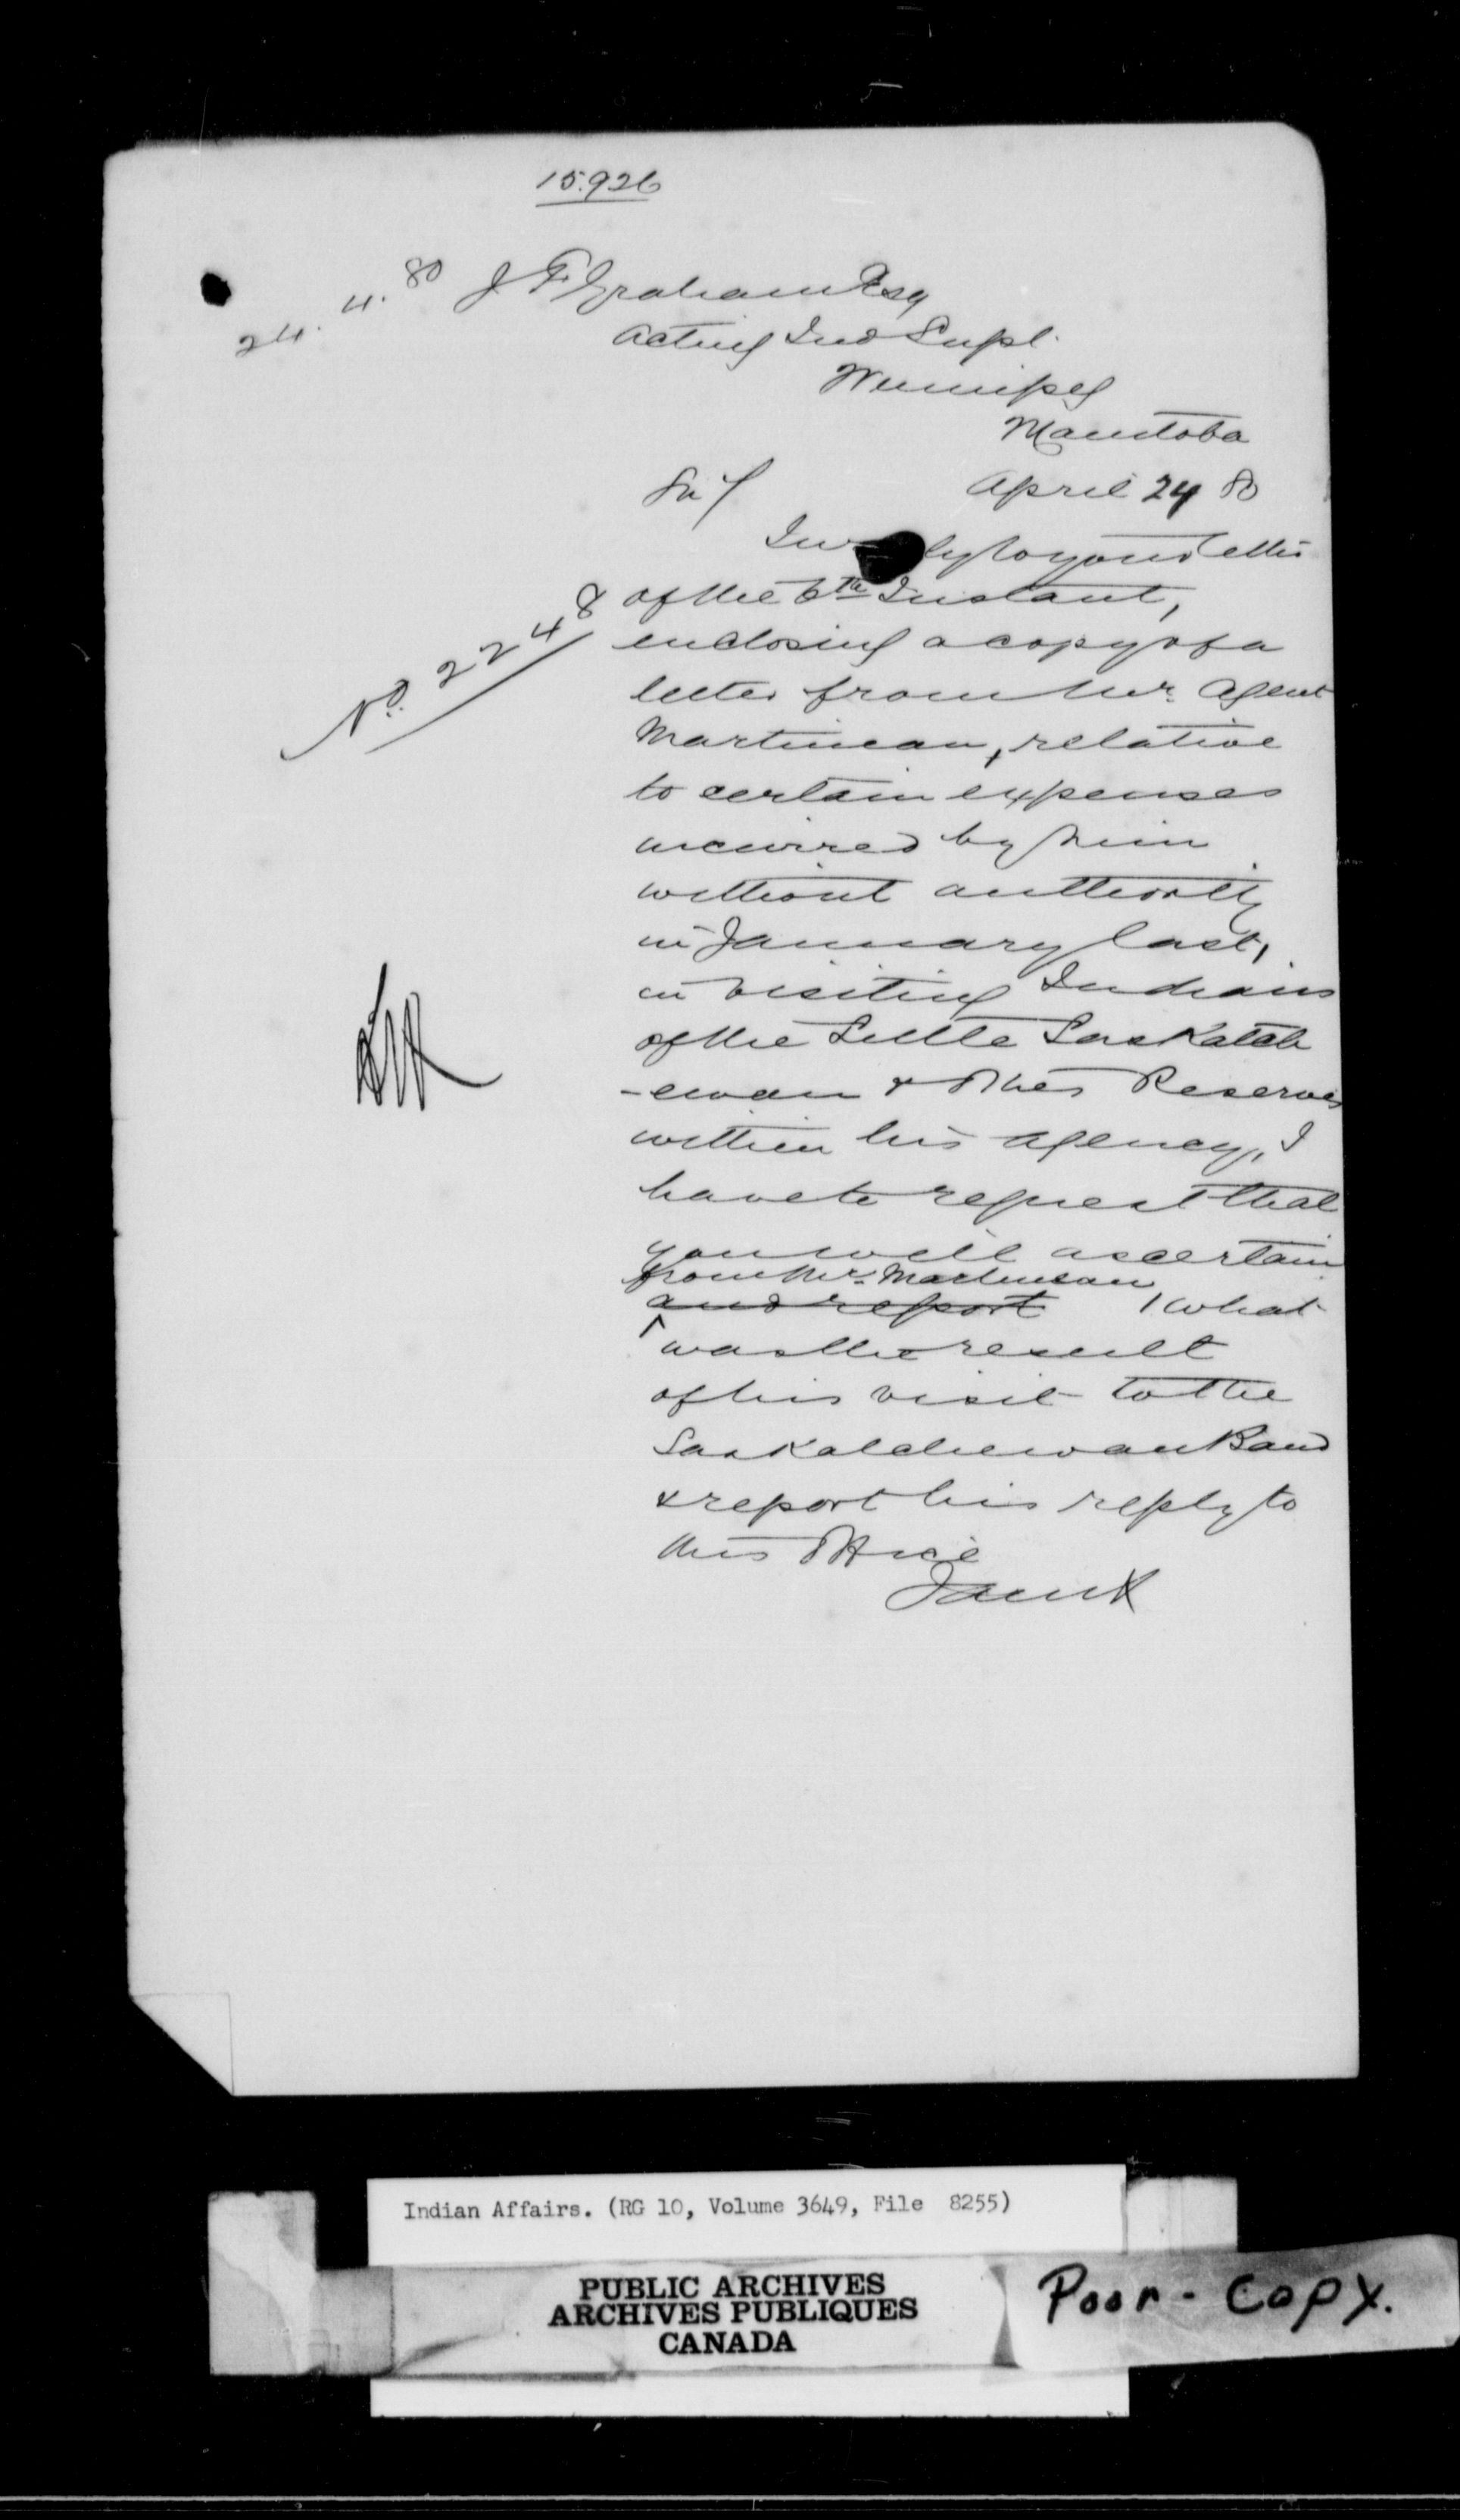 15.926
24. 4. 80
J. F. Graham Esq
Acting Ind Supt.
Winnipeg
Manitoba
April 24 80
Sir/
In ly to your letter
No. 2248
of the 6th Instant,
enclosing a copy of a
letter from Mr. Agent
Martineau, relative
to certain expenses
incurred by him
without authority
in January last,
in visiting Indians
of the Little Saskatch
-ewan & other Reserves
within his agency, I
have to request that
you will ascertain
from Mr. Martineau
and report , what
was the result
of his visit to the
Saskatchewan Band
& report his reply to
this Office
Indian Affairs. (RG 10, Volume 3649, File 8255)
PUBLIC ARCHIVES
ARCHIVES PUBLIQUES
CANADA
Poor - Copy.